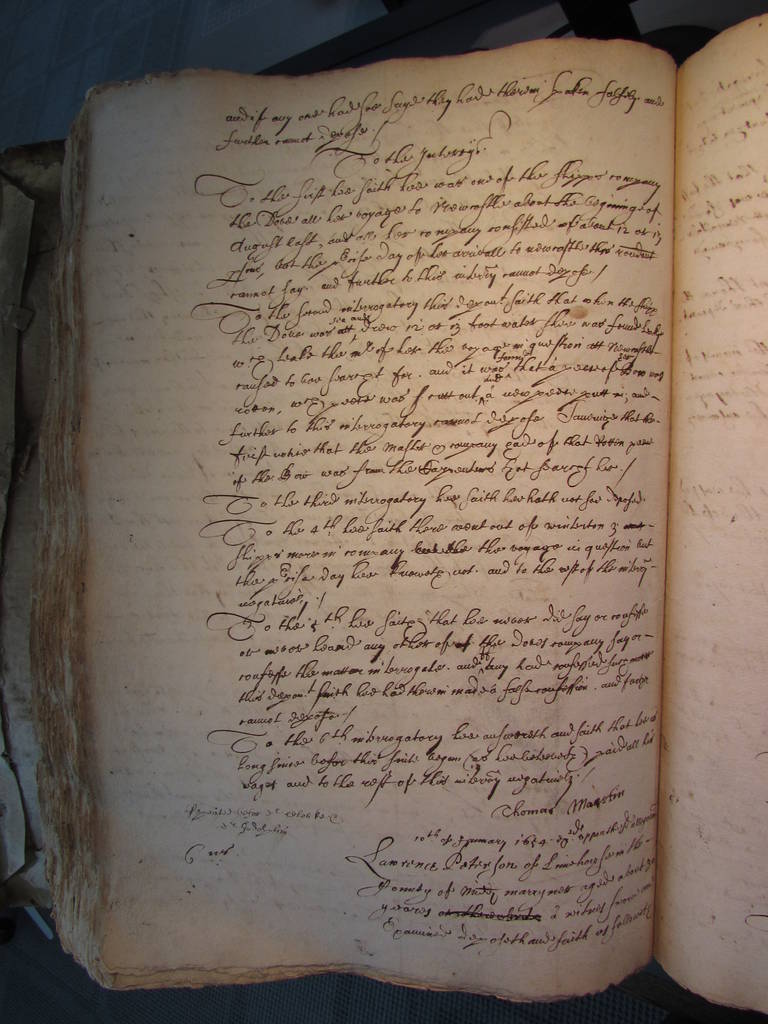 and if any one had soe sayd they had therein spoken falsely. and
further cannot depose./
To the Interr̃ys.
To the first hee saith hee was one of the shipps company
the Dove all her voyage to Newcastle about the beginninge of
August last, and all her company consisted of about 12 or 13
but the p̱cise day of her arrivall to newcastle this
cannot say. and further to this interr̃y cannot depose/
To the second interrogatory this depont saith that when the shipp
the Dove was att drew 12 or 13 foot water shee was found
leake the of her the voyage in question att Newcastle
caused to bee searcht for. and it was that a peece of was
rotten, wch peece was cutt out, & a new peece putt in, and
further to this interrogatory cannot depose. that the
first notice that the Master & company had of that rotten peece
of the Bow was from the Carpenters that search her./
To the third interrogatory hee saith hee hath not soe deposed.
To the 4th hee saith there went out of winterton 3
shipps more in company the voyage in question but
the p̱cise day hee knoweth not. and to the rest of the interr̃y
negatively./
To the 5th hee saith that hee never did say or confesse
or never heard any other of the Doves company say or
confesse the matter interrogate. and if any had confessed
this depont saith hee had therein made a false confession. and further
cannot depose/
To the 6th interrogatory hee answereth and saith that hee is
long since before this suite began (as hee beleeveth) paid all his
wages and to the rest of this interr̃y negatively./
Thomas Marstin
Repeated before
6
10th of January 1654.
Lawrence Peterson of Limehouse in the
County of marryner aged about
yeares a witnes sworne and
Examined deposeth and saith as followeth